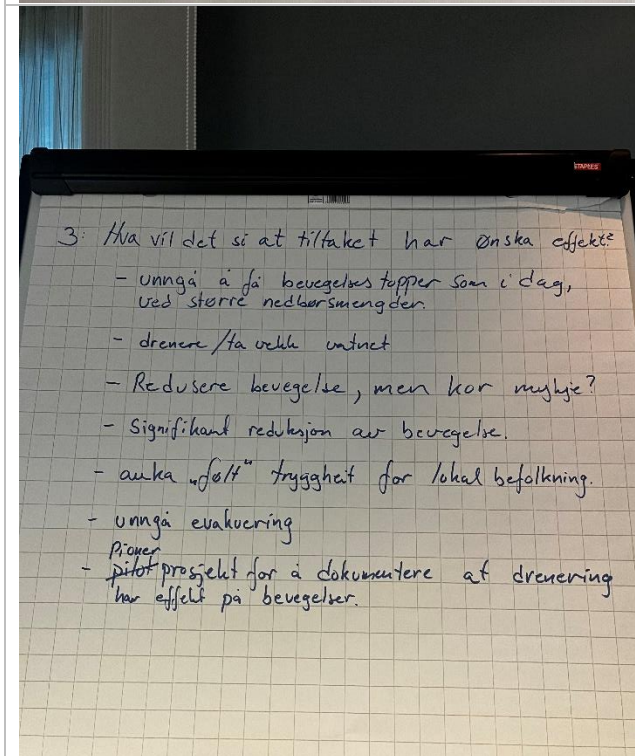 STAPLES
3: Hva vil det si at tiltaket har ønska effekt?
- unngå å få bevegelses topper som i dag,
ved større nedbørsmengder.
- drenere / ta vekk vatnet
- Redusere bevegelse, men kor mykje?
- Signifikant reduksjon av bevegelse.
- auka "følt" tryggheit for lokal befolkning.
- unngå evakuering
Pioner
- pilot prosjekt for å dokumentere at drenering
har effekt på bevegelser.